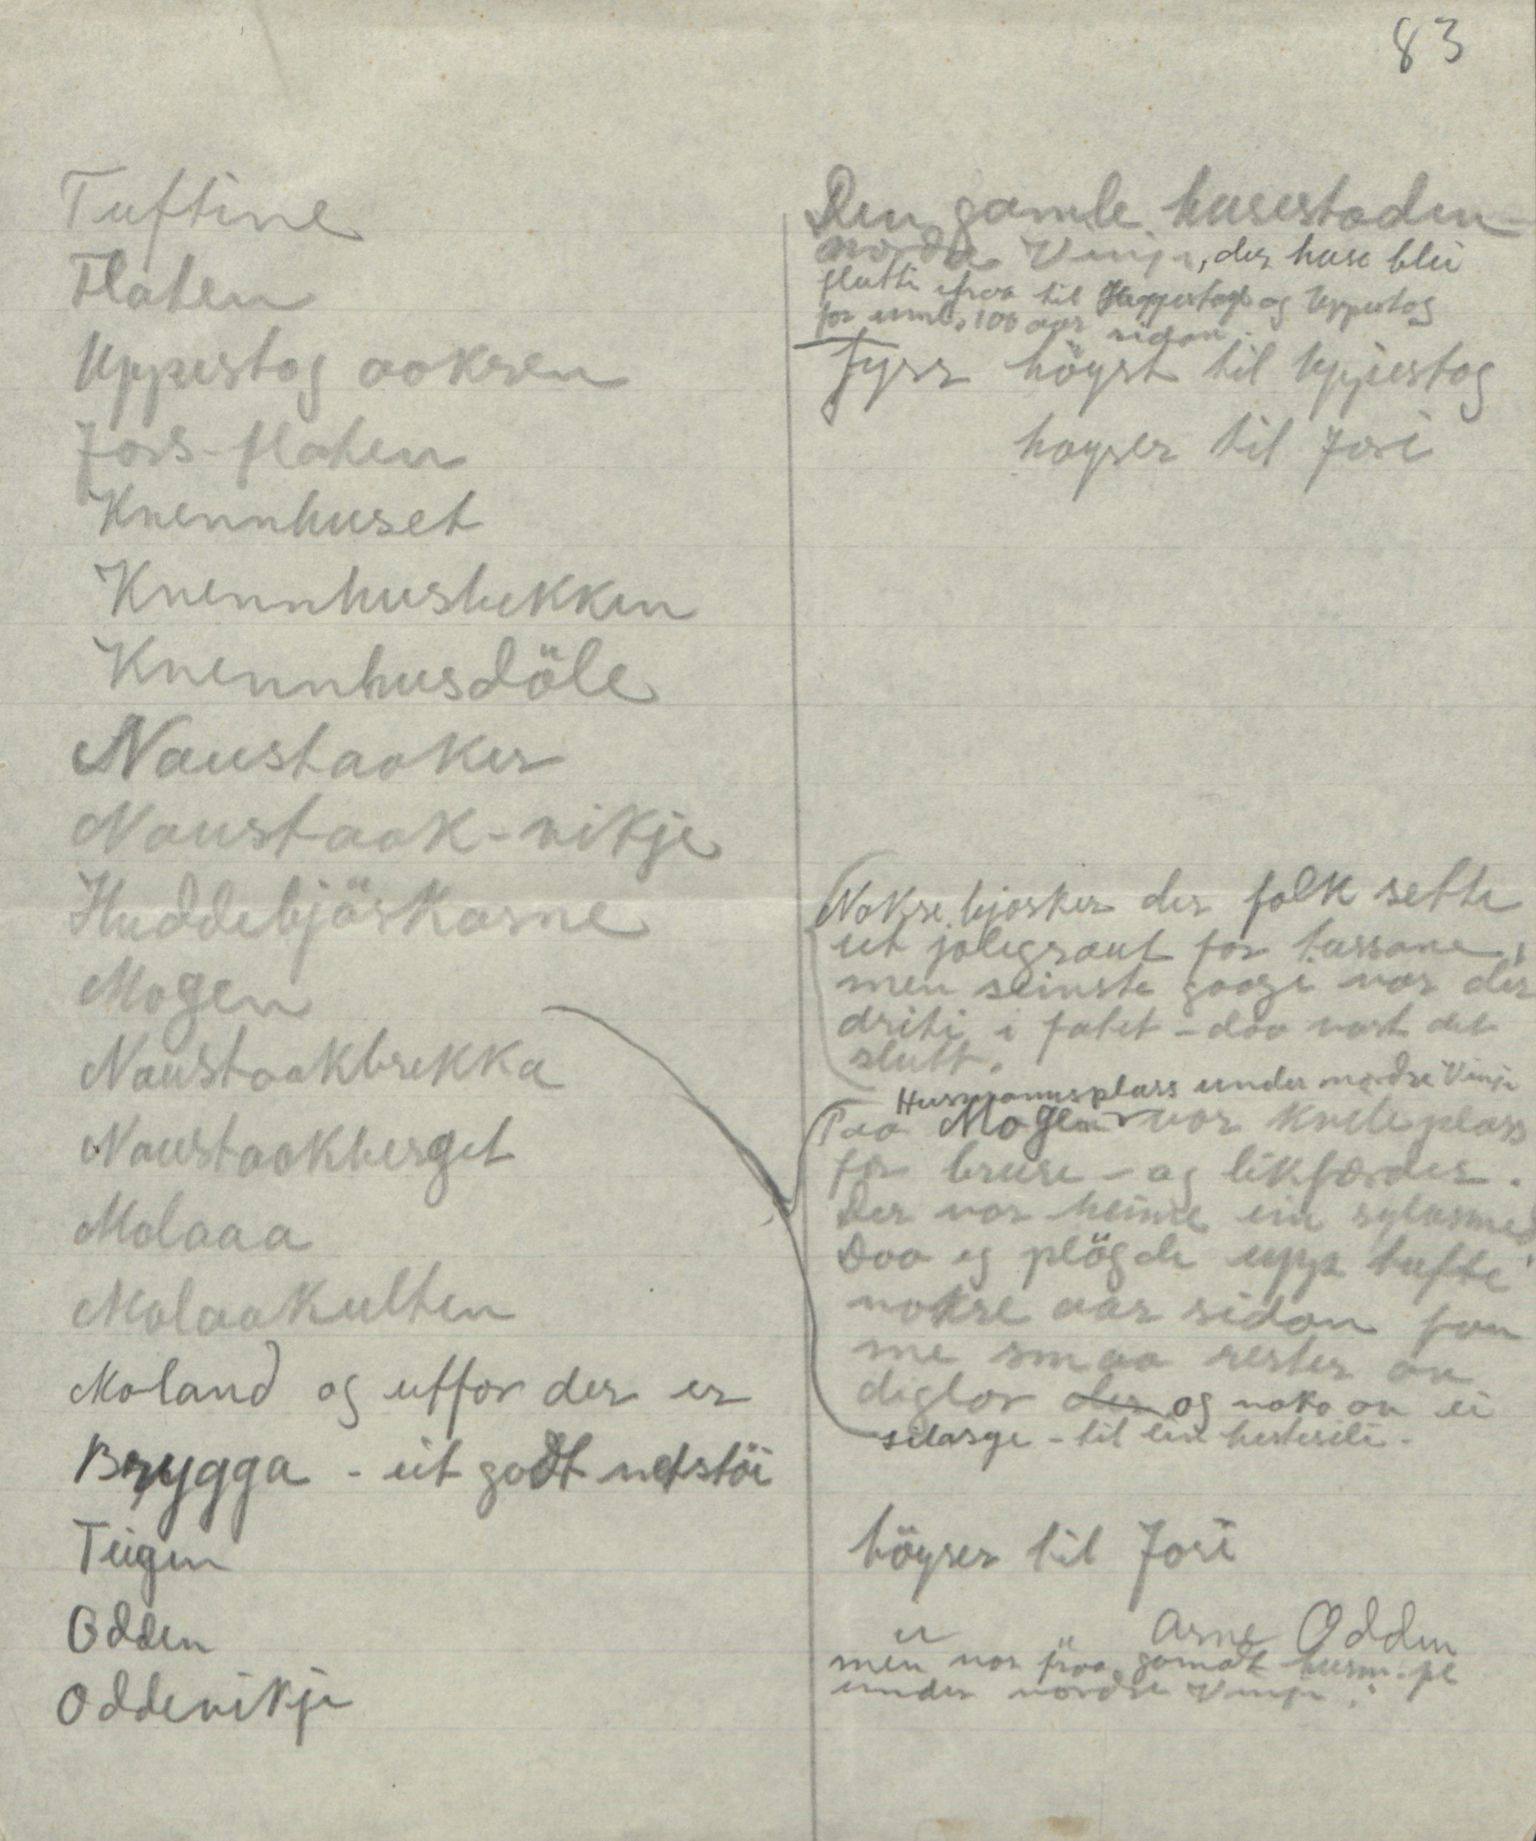 83
Tuftine
Flaten
Uppistog aakren
Joss-flaten
Kvennhuset
Kvennhusbekken
Kvennhusdöle
Naustaaker
Naustaak-vikje
Huddebjörkarne
Mogen
Naustaakbrekka
Naustaakberget
Molaaa
Molaakulten
Moland og utfor der er
Brygga - eit godt notstöi
Teigen
Odden
Oddevikje
Den gamle husestaden
nordre Vinje, der huse blei
flutti ifraa til og Uppistog
for uml. 100 aar sidan.
Fyrr höyrt til Uppistog
hoyrer til Josi
Nokre bjorker der folk sette
ut jolegraut for tussane,
men seinste googi var der
driti i fatet - daa vart det
slutt.
Husmannsplass under nordre Vinje
Paa Mogen var kvileplass
for bruse - og likfærder.
Der var heime ein sylvsmed
Daa eg plögde upp tufte
nokre aar sidan fan
me smaa rester av
diglar der og noko av ei
- til ein hestesele.
höyrer til Josi
er Arne Odden
men var fraa gamalt husm.pl
under nordre Vinje.